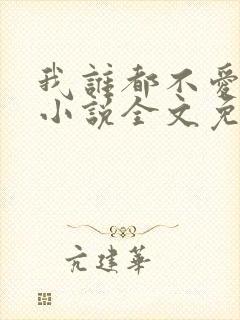 我誰都不愛
小說全文免
亢建華